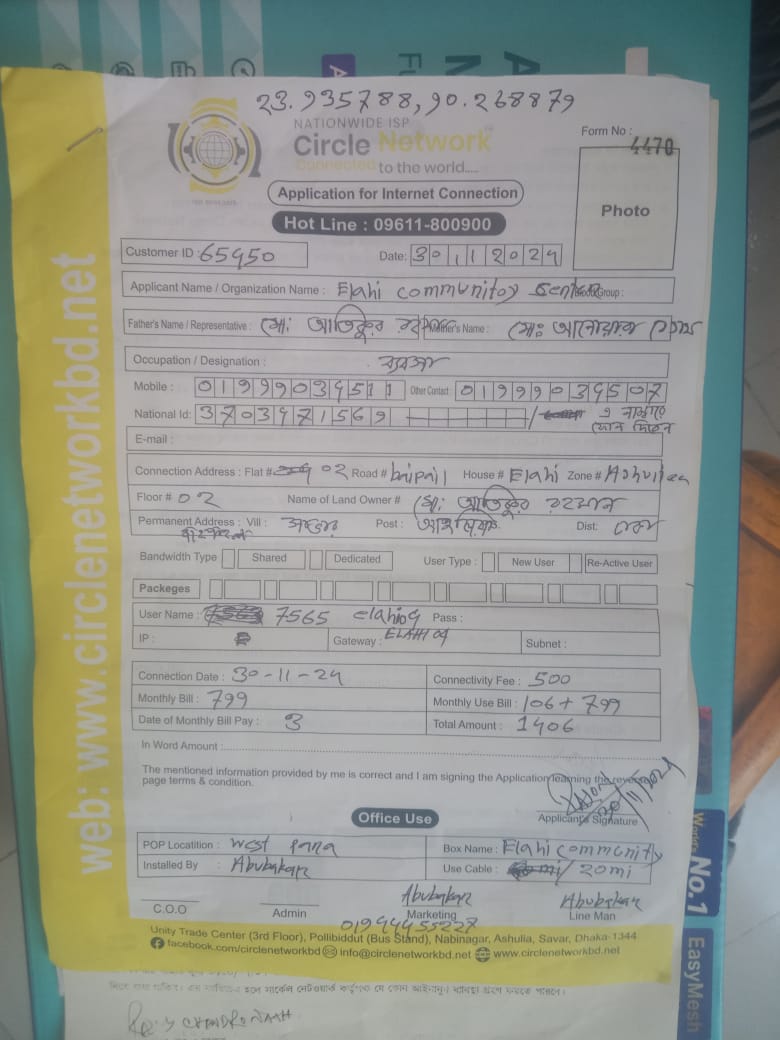 23.935788,90.268879
NATIONWIDE ISP
Circle Network
Connected to the world....
Form No : 4470
Application for Internet Connection
Photo
Hot Line : 09611-800900
Customer ID : 65450
Date: 30 11 2024
Applicant Name / Organization Name : Elahi communitoy Center Group :
Father's Name / Representative : মো: আতিকুর রহমান Mother's Name : মোঃ আনোয়ারা বেগম
Occupation / Designation : ব্যবসা
Mobile : 01999034511 Other Contact 01999034507
National Id: 3703471569 / এ নাম্বারে ফোন দিবেন
E-mail :
Connection Address : Flat # 02 Road # baipail House # Elahi Zone # Ashuliea
Floor # 02 Name of Land Owner # মো: আতিকুর রহমান
Permanent Address : Vill : Post : Dist: ঢাকা
বাইপাইল
Bandwidth Type Shared Dedicated User Type : New User Re-Active User
Packeges
User Name : 7565 elahi04 Pass :
IP : Gateway : ELAHI 04 Subnet :
Connection Date : 30-11-24 Connectivity Fee : 500
Monthly Bill : 799 Monthly Use Bill : 106 + 799
Date of Monthly Bill Pay : 3 Total Amount : 1406
In Word Amount :
The mentioned information provided by me is correct and I am signing the Application learning the reverse
page terms & condition.
Applicant's Signature
Office Use
POP Locatition : West para Box Name : Elahi community
Installed By : Abubakar Use Cable : / 20mi
Abubakar Abubakar
C.O.O Admin Marketing Line Man
01944455228
Unity Trade Center (3rd Floor), Pollibiddut (Bus Stand), Nabinagar, Ashulia, Savar, Dhaka-1344
facebook.com/circlenetworkbd info@circlenetworkbd.net www.circlenetworkbd.net
web: www.circlenetworkbd.net
No.1
EasyMesh